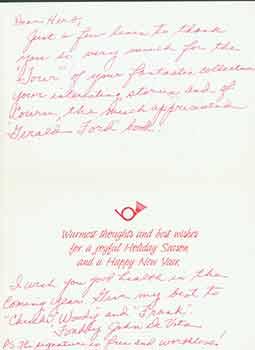 Dear Herb,
Just a few lines to thank
you so very much for the
"Tour" of your fantastic collection
your interesting stories and of
Course, the much appreciated
Gerald Ford book!
Warmest thoughts and best wishes
for a joyful Holiday Season
and a Happy New Year.
I wish you good health in the
Coming year! Give my best to
"Chuck", Woody and "Frank".
John De Vito
PS The signature is free and worthless!